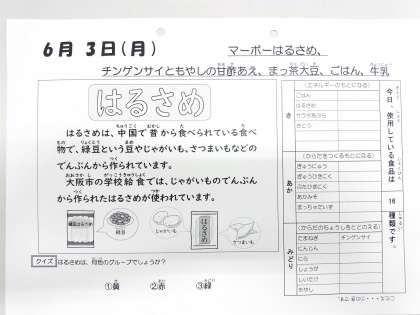 6月 3日(月)
マーボーはるさめ、
チンゲンサイともやしの甘酢あえ、まっ茶大豆、ごはん、牛乳
はるさめ
はるさめは、中国で昔から食べられている食べ
物で、緑豆という豆やじゃがいも、さつまいもなどの
でんぷんから作られています。
大阪市の学校給食では、じゃがいものでんぷん
から作られたはるさめが使われています。
緑豆はるさめ
緑豆
じゃがいも
はるさめ
さつまいも
クイズ
はるさめは、何色のグループでしょうか?
①黄 ②赤 ③緑
今日、使用している食品は
16
種類です。
き
(エネルギーのもとになる)
ごはん
はるさめ
さとう
あか
(からだをつくるもとになる)
ぎゅうにゅう
ぎゅうひきにく
ぶたひきにく
あかみそ
まっちゃだいず
みどり
(からだのちょうしをととのえる)
たまねぎ
チンゲンサイ
にんじん
にら
しょうが
しいたけ
もやし